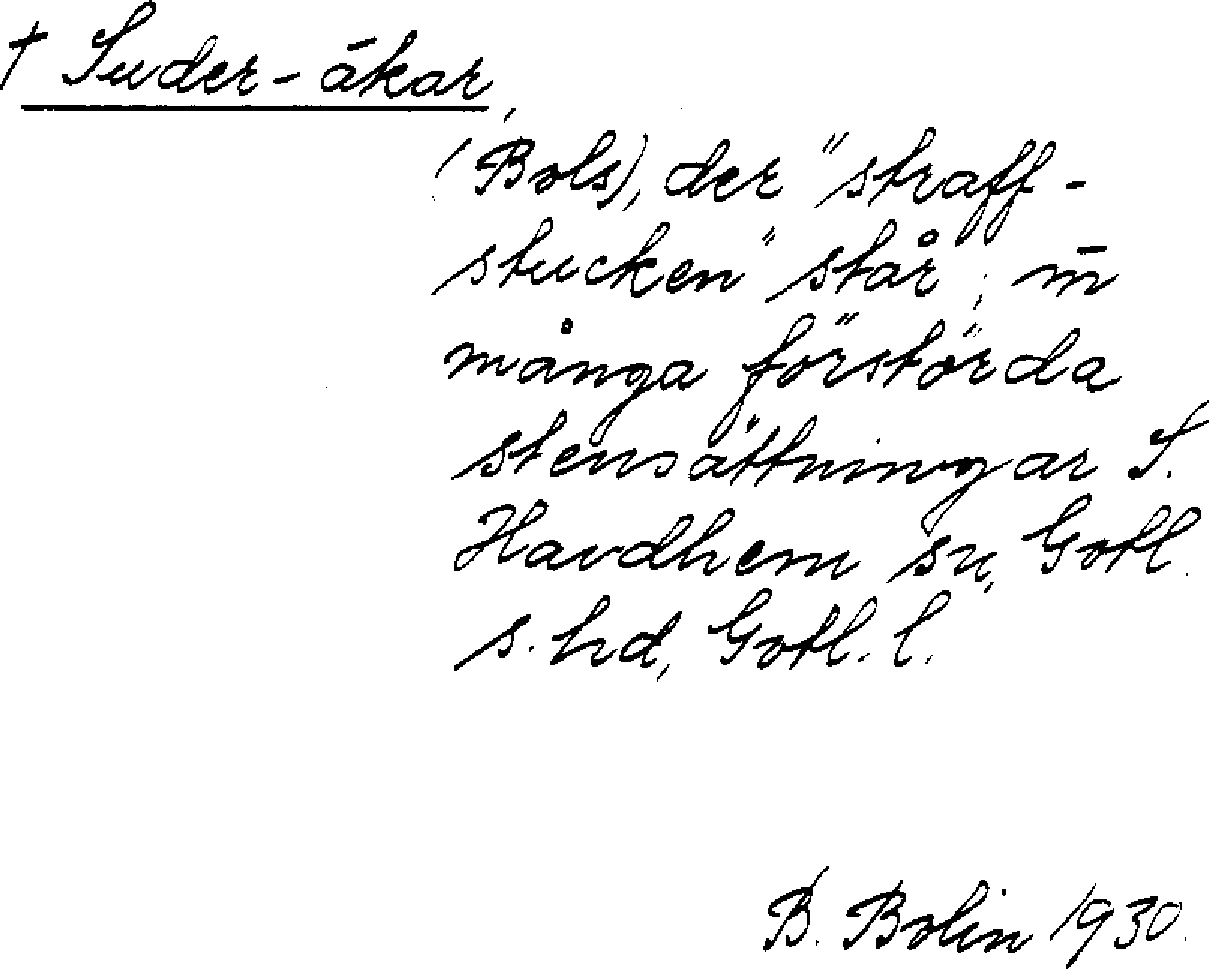 † Suder-ākar,
(Bols), der "straff-
stucken" står; m̄
många förstörda
stensättningar S.
Havdhem sn, Gotl.
s. hd, Gotl. l.
B. Bolin 1930.